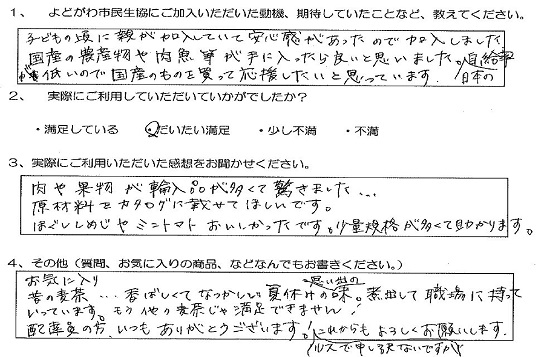 1、 よどがわ市民生協にご加入いただいた動機、期待していたことなど、教えてください。
子どもの頃に親が加入していて安心感があったので加入しました
国産の農産物や肉魚等が手に入ったら良いと思いました。自給率
が低いので国産のものを買って応援したいと思っています。日本の
2、 実際にご利用していただいていかがでしたか?
・満足している ・だいたい満足 ・少し不満 ・不満
3、実際にご利用いただいた感想をお聞かせください。
肉や果物が輸入品が多くて驚きました…
原材料をカタログに載せてほしいです。
ほぐししめじやミニトマトおいしかったです。少量規格が多くて助かります。
4、その他(質問、お気に入りの商品、などなんでもお書きください。)
お気に入り 思い出の
昔の麦茶…香ばしくてなつかしい夏休みの味。煮出して職場に持って
いっています。もう他の麦茶じゃ満足できません!
配達員の方、いつもありがとうございます。これからもよろしくお願いします。
(ルスで申し訳ないですが)